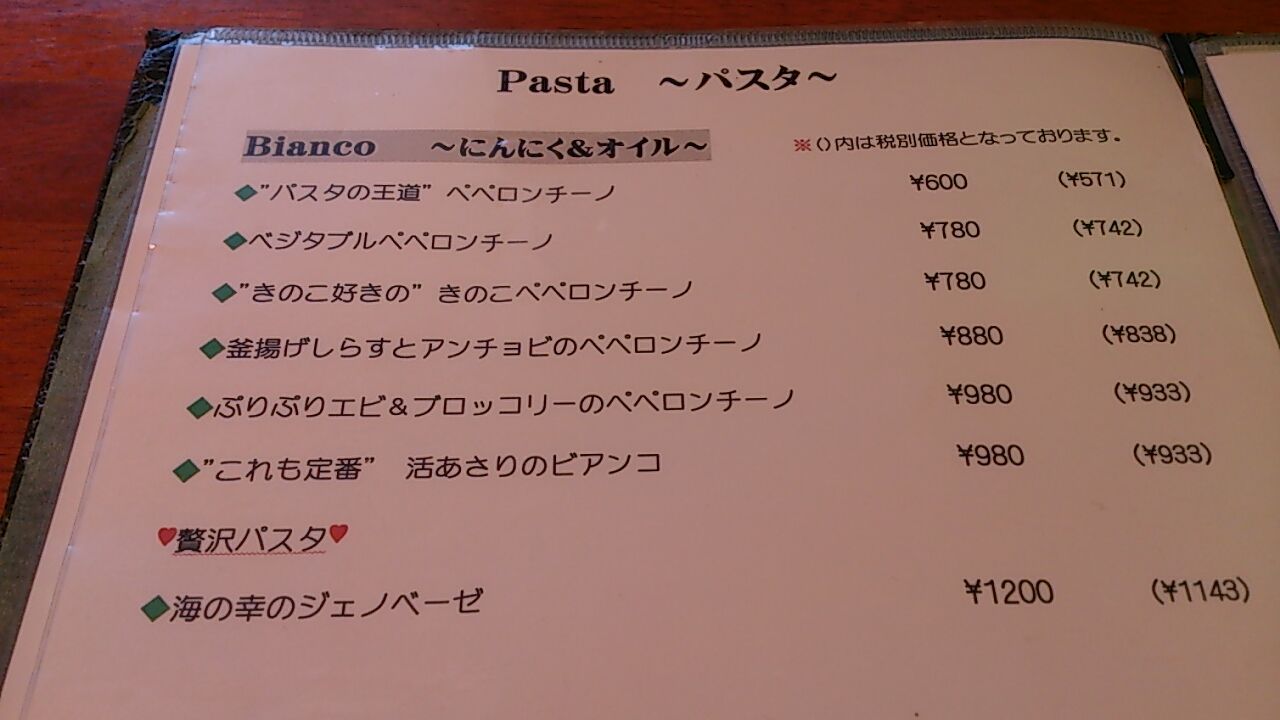 Pasta ～パスタ～
Bianco ～にんにく&オイル～ ※()内は税別価格となっております。
◆"パスタの王道" ペペロンチーノ ¥600 (¥571)
◆ベジタブルペペロンチーノ ¥780 (¥742)
◆"きのこ好きの" きのこペペロンチーノ ¥780 (¥742)
◆釜揚げしらすとアンチョビのペペロンチーノ ¥880 (¥838)
◆ぷりぷりエビ＆ブロッコリーのペペロンチーノ ¥980 (¥933)
◆"これも定番" 活あさりのビアンコ ¥980 (¥933)
♥贅沢パスタ♥
◆海の幸のジェノベーゼ ¥1200 (¥1143)